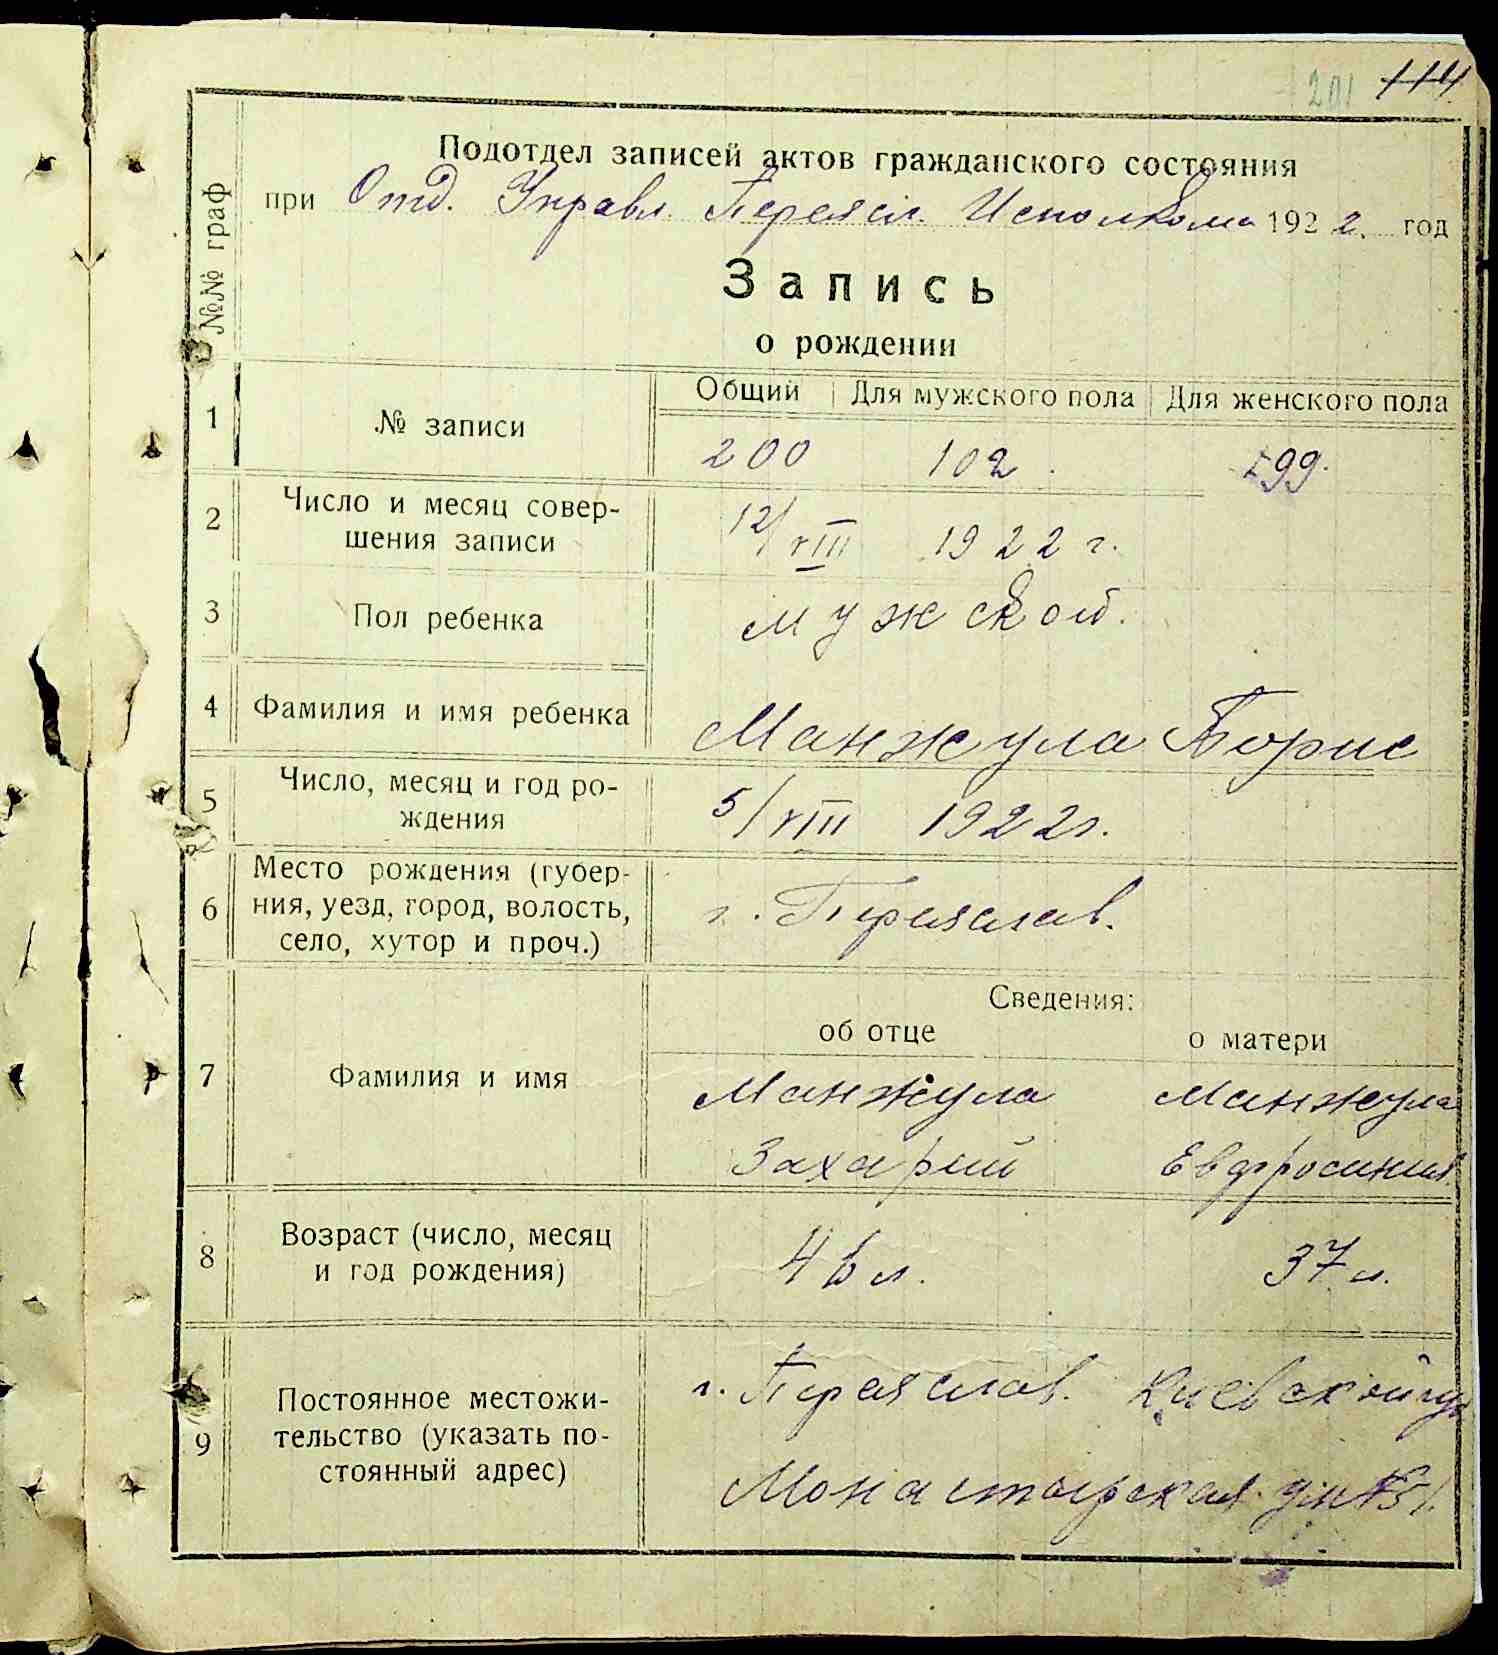 201 114
Подотдел записей актов гражданского состояния
при Отд. Управл. Переясл. Исполкома 1922. год
№№ граф
Запись
о рождении
Общий Для мужского пола Для женского пола
1 № записи 200 102. 99.
2 Число и месяц совер-
шения записи 12/VIII 1922 г.
3 Пол ребенка мужской.
4 Фамилия и имя ребенка Манжула Борис
5 Число, месяц и год ро-
ждения 5/VIII 1922г.
6 Место рождения (губер-
ния, уезд, город, волость,
село, хутор и проч.) г. Переяслав.
Сведения:
об отце о матери
7 Фамилия и имя Манжула Манжула
Захарий Евдросиния
8 Возраст (число, месяц
и год рождения) л. 37 л.
9 Постоянное местожи-
тельство (указать по-
стоянный адрес) г. Переяслав. Киевской гу
Монастырская